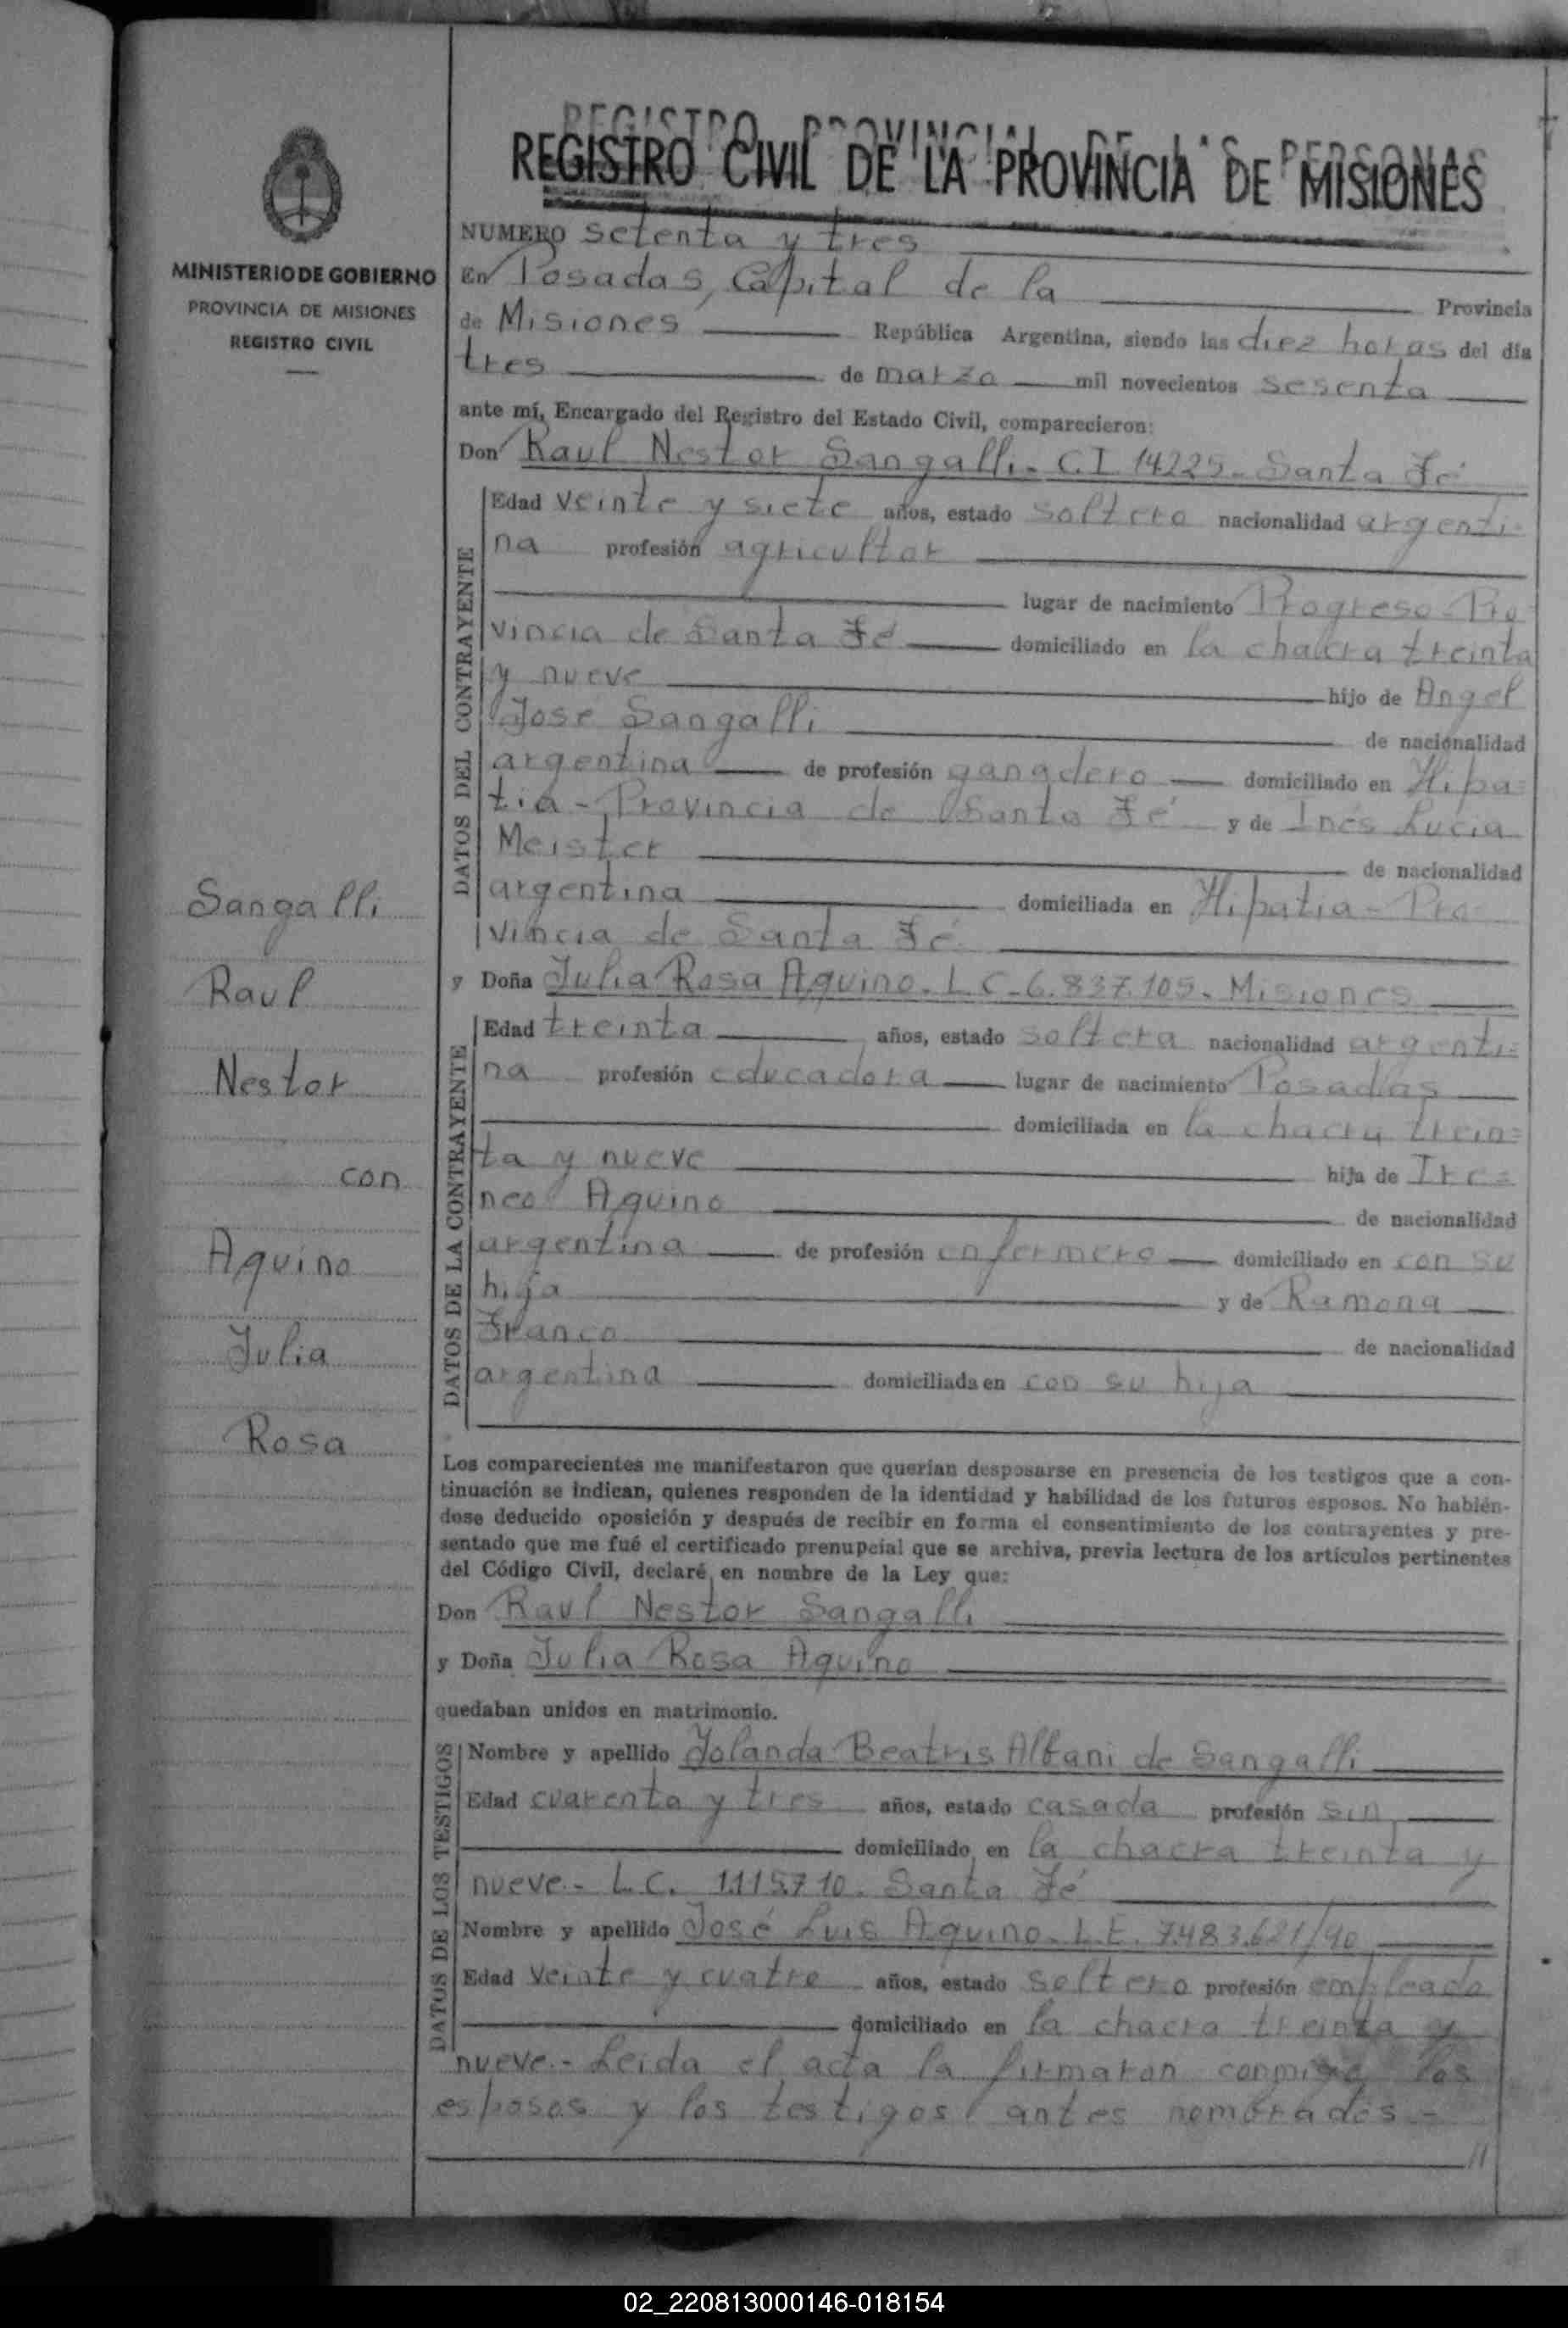 REGISTRO PROVINCIAL DE LAS PERSONAS
REGISTRO CIVIL DE LA PROVINCIA DE MISIONES
MINISTERIO DE GOBIERNO
PROVINCIA DE MISIONES
REGISTRO CIVIL
Sangalli
Raul
Nestor
con
Aquino
Julia
Rosa
NUMERO setenta y tres
En Posadas, Capital de la Provincia
de Misiones República Argentina, siendo las diez horas del día
tres de marzo mil novecientos sesenta
ante mí, Encargado del Registro del Estado Civil, comparecieron:
Don Raul Nestor Sangalli.- C.I. 14225- Santa Fé
DATOS DEL CONTRAYENTE
Edad veinte y siete años, estado soltero nacionalidad argenti-
na profesión agricultor
lugar de nacimiento Progreso- Pro-
vincia de Santa Fé domiciliado en la chacra treinta
y nueve hijo de Angel
José Sangalli de nacionalidad
argentina de profesión ganadero domiciliado en Hipa=
tia - Provincia de Santa Fé y de Inés Lucia
Meister de nacionalidad
argentina domiciliada en Hipatia - Pro-
vincia de Santa Fé
y Doña Julia Rosa Aquino. L.C. 6.837.105. Misiones
DATOS DE LA CONTRAYENTE
Edad treinta años, estado soltera nacionalidad argenti=
na profesión educadora lugar de nacimiento Posadas
domiciliada en la chacra trein=
ta y nueve hija de Ire=
neo Aquino de nacionalidad
argentina de profesión enfermero domiciliado en con su
hija y de Ramona
Franco de nacionalidad
argentina domiciliada en con su hija
Los comparecientes me manifestaron que querían desposarse en presencia de los testigos que a con-
tinuación se indican, quienes responden de la identidad y habilidad de los futuros esposos. No habién-
dose deducido oposición y después de recibir en forma el consentimiento de los contrayentes y pre-
sentado que me fué el certificado prenupcial que se archiva, previa lectura de los artículos pertinentes
del Código Civil, declaré en nombre de la Ley que:
Don Raul Nestor Sangalli
y Doña Julia Rosa Aquino
quedaban unidos en matrimonio.
DATOS DE LOS TESTIGOS
Nombre y apellido Yolanda Beatris Albani de Sangalli
Edad cuarenta y tres años, estado casada profesión sin
domiciliado en la chacra treinta y
nueve.- L.C. 1.115.710. Santa Fé
Nombre y apellido José Luis Aquino. L.E. 7.483.621/40
Edad veinte y cuatro años, estado soltero profesión empleado
domiciliado en la chacra treinta y
nueve.- Leida el acta la firmaron conmigo los
esposos y los testigos antes nombrados.-
02_220813000146-018154